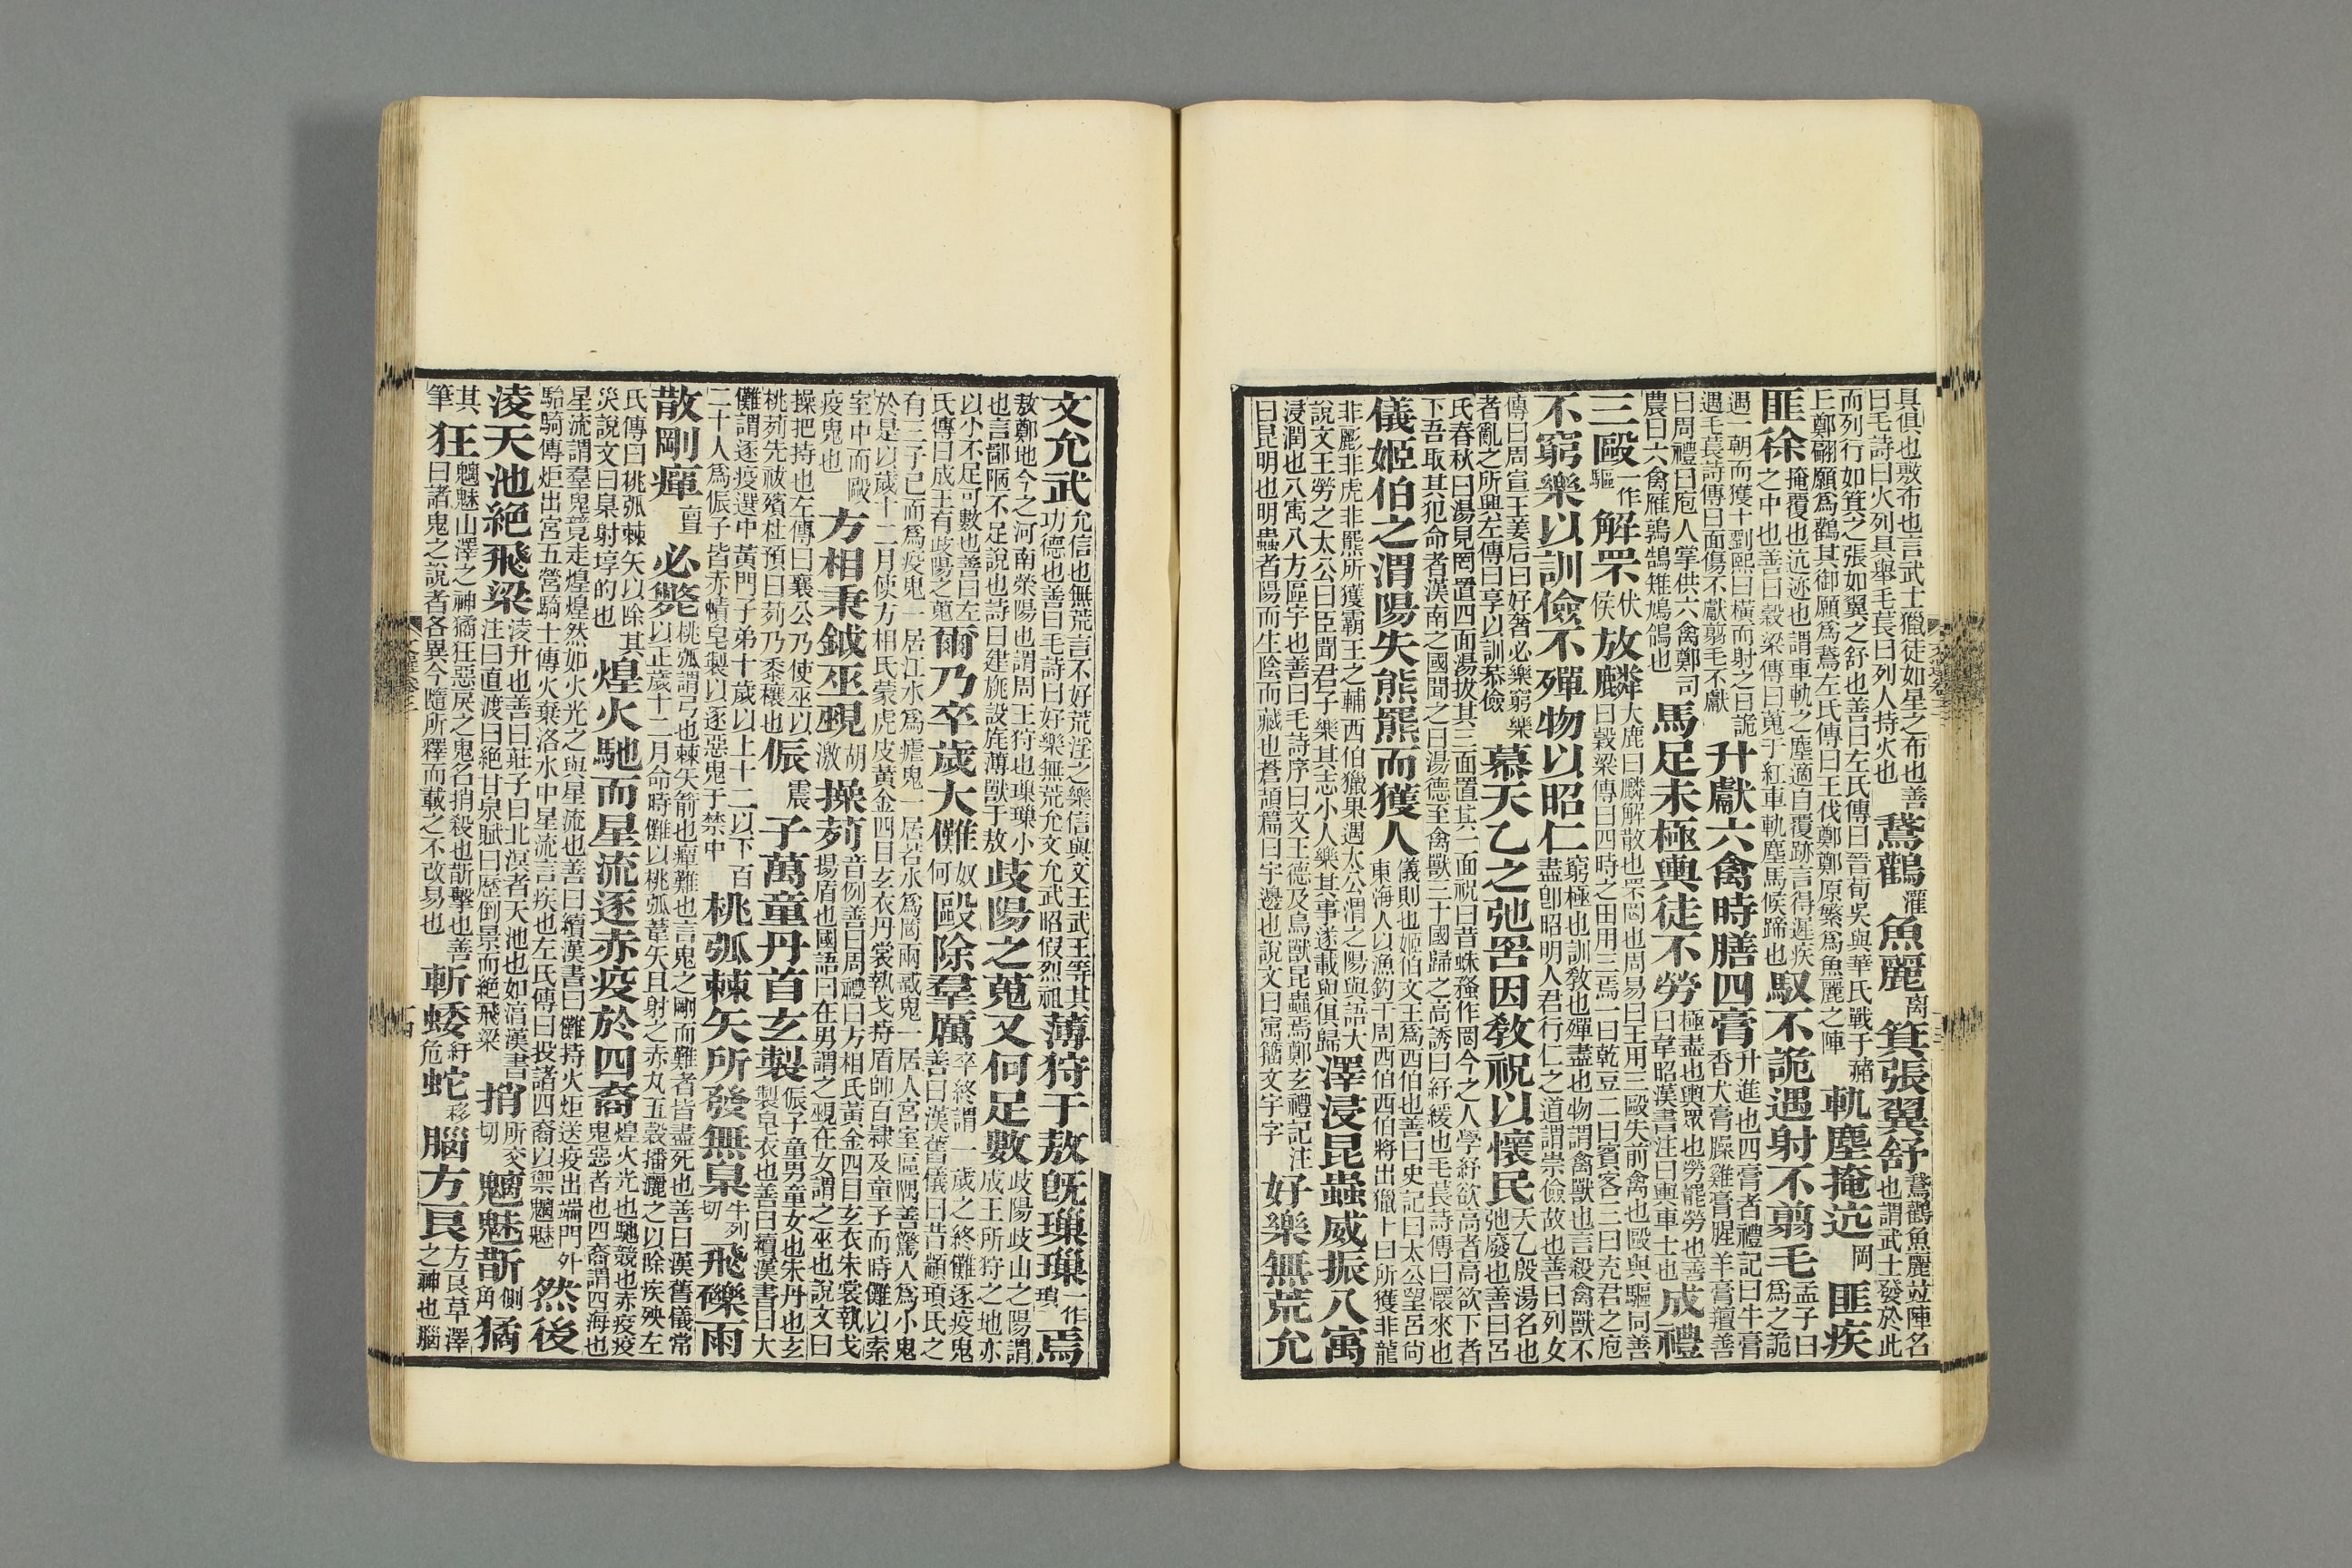 具俱也敷布也言武士獵徒如星之布也善曰毛詩曰火列具舉毛萇曰列人持火也鵞鸛灌魚麗离箕張翼舒鵞鸛魚麗竝陣名也謂武士發於此
而列行如箕之張如翼之舒也善曰左氏傳曰晉荀吳與華氏戰于赭丘鄭翩願爲鸛其御願爲鵞左氏傳曰王伐鄭鄭原繁爲魚麗之陣軌塵掩迒岡匪疾
匪徐掩覆也迒迹也謂車軌之塵適自覆跡言得遲疾之中也善曰穀梁傳曰蒐于紅車軌塵馬候蹄也馭不詭遇射不翦毛孟子曰爲之詭
遇一朝而獲十劉熙曰橫而射之曰詭遇毛萇詩傳曰面傷不獻翦毛不獻升獻六禽時膳四膏升進也四膏者禮記曰牛膏香犬膏臊雞膏腥羊膏羶善
曰周禮曰庖人掌供六禽鄭司農曰六禽雁鶉鷃雉鳩鴿也馬足未極輿徒不勞極盡也輿眾也勞罷勞也善曰韋昭漢書注曰輿車士也成禮
三毆一作驅解罘伏侯放麟大鹿曰麟解散也罘罔也周易曰王用三毆失前禽也毆與驅同善曰穀梁傳曰四時之田用三焉一曰乾豆二曰賓客三曰充君之庖
不窮樂以訓儉不殫物以昭仁窮極也訓敎也殫盡也物謂禽獸也言殺禽獸不盡卽昭明人君行仁之道謂崇儉故也善曰列女
傳曰周宣王姜后曰好奢必樂窮樂者亂之所興左傳曰享以訓恭儉慕天乙之弛罟因敎祝以懷民天乙殷湯名也弛廢也善曰呂
氏春秋曰湯見罔置四面湯拔其三面置其一面祝曰昔蛛蝥作罔今之人學紓欲高者高欲下者下吾取其犯命者漢南之國聞之曰湯德至禽獸三十國歸之高誘曰紓緩也毛萇詩傳曰懷來也
儀姬伯之渭陽失熊羆而獲人儀則也姬伯文王爲西伯也善曰史記曰太公望呂尙東海人以漁釣干周西伯西伯將出獵卜曰所獲非龍
非彲非虎非羆所獲霸王之輔西伯獵果遇太公渭之陽與語大說文王勞之太公曰臣聞君子樂其志小人樂其事遂載與俱歸澤浸昆蟲威振八寓
浸潤也八寓八方區宇也善曰毛詩序曰文王德及鳥獸昆蟲焉鄭玄禮記注曰昆明也明蟲者陽而生陰而藏也蒼頡篇曰宇邊也說文曰寓籀文宇字好樂無荒允
文允武允信也無荒言不好荒淫之樂信與文王武王等其功德也善曰毛詩曰好樂無荒允文允武昭假烈祖薄狩于敖旣璅璅一作瑣焉
敖鄭地今之河南滎陽也謂周王狩也璅璅小也言鄙陋不足說也詩曰建旐設旄薄獸于敖歧陽之蒐又何足數歧陽歧山之陽謂成王所狩之地亦
以小不足可數也善曰左氏傳曰成王有歧陽之蒐爾乃卒歲大儺奴何毆除羣厲卒終謂一歲之終儺逐疫鬼善曰漢舊儀曰昔顓頊氏之
有三子已而爲疫鬼一居江水爲瘧鬼一居若水爲罔兩蜮鬼一居人宮室區隅善驚人爲小鬼於是以歲十二月使方相氏蒙虎皮黃金四目玄衣丹裳執戈持盾帥百隸及童子而時儺以索
室中而毆疫鬼也方相秉鉞巫覡胡激操茢音例善曰周禮曰方相氏黃金四目玄衣朱裳執戈揚盾也國語曰在男謂之覡在女謂之巫也說文曰
操把持也左傳曰襄公乃使巫以桃茢先祓殯杜預曰茢乃黍穰也侲震子萬童丹首玄製侲子童男童女也朱丹也玄製皂衣也善曰續漢書曰大
儺謂逐疫選中黃門子弟十歲以上十二以下百二十人爲侲子皆赤幘皂製以逐惡鬼于禁中桃弧棘矢所發無臬牛列切飛礫雨
散剛癉亶必斃桃弧謂弓也棘矢箭也癉難也言鬼之剛而難者皆盡死也善曰漢舊儀常以正歲十二月命時儺以桃弧葦矢且射之赤丸五穀播灑之以除疾殃左
氏傳曰桃弧棘矢以除其災說文曰臬射埻的也煌火馳而星流逐赤疫於四裔煌火光也馳競也赤疫疫鬼惡者也四裔謂四海也
星流謂羣鬼竟走煌煌然如火光之與星流也善曰續漢書曰儺持火炬送疫出端門外騶騎傳炬出宮五營騎士傳火棄洛水中星流言疾也左氏傳曰投諸四裔以禦魑魅然後
淩天池絕飛梁淩升也善曰莊子曰北溟者天池也如淳漢書注曰直渡曰絕甘泉賦曰歷倒景而絕飛梁捎所交切魑魅斮側角獝
其筆狂魑魅山澤之神獝狂惡戾之鬼名捎殺也斮擊也善曰諸鬼之說者各異今隨所釋而載之不改易也斬蜲紆危蛇移腦方良方良草澤之神也腦